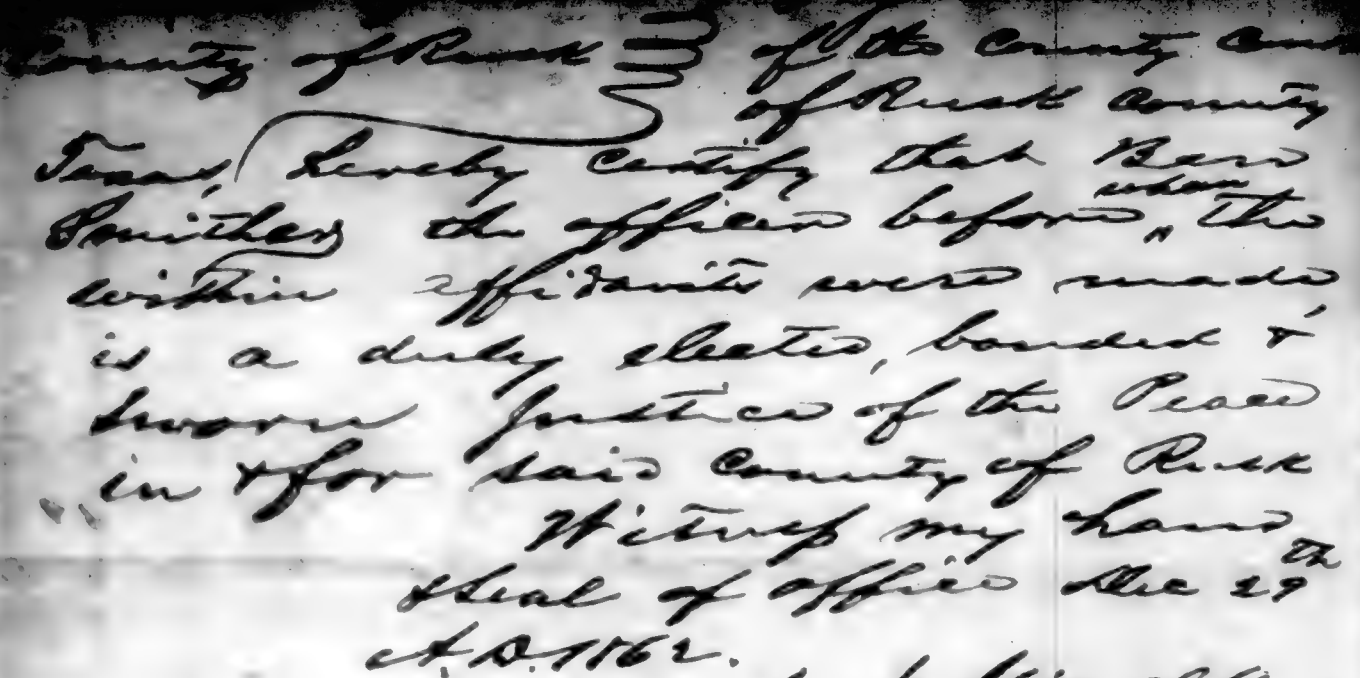 County of Rusk of the County Court
of Rusk County
Texas, hereby Certify that Ben
Smither the officer before whom the
within affidavits were made,
is a duly elected, bonded &
Sworn Justice of the Peace
in & for said County of Rusk
Witness my hand
& Seal of office Dec 29th
A.D. 1862.